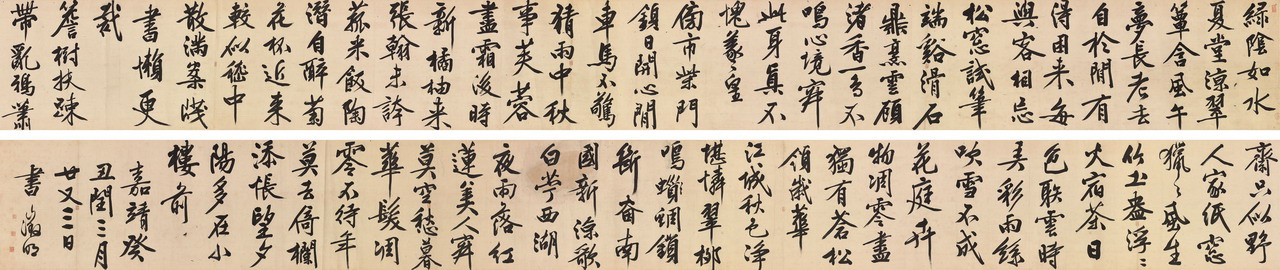 綠陰如水
夏堂涼翠
簟含風午
夢長老去
自於閒有
得困來每
與客相忘
松窗試筆
端谿滑石
鼎烹雲顧
渚香一鳥不
鳴心境寂
此身真不
愧羲皇
閉市柴門
鎖日閒心閒
車馬不驚
猜雨中秋
事芙蓉
盡霜後時
新橘柚來
張翰未誇
菰米飯陶
潛自醉菊
花杯近來
較似嵇中
散滿案牋
書懶更
裁
簷樹扶疎
帶亂鴉蕭
齋只似野
人家紙窗
獵獵風生
竹土盎浮浮
火宿茶日
色聯雲時
弄彩雨絲
吹雪不成
花庭卉
物凋零盡
獨有蒼松
領歲華
江城秋色淨
堪憐翠柳
鳴蜩鎖
斷奩南
國新涼歌
白苧西湖
夜雨落紅
蓮美人寂
莫空愁暮
華髮凋
零不待年
莫去倚欄
添悵望夕
陽多在小
樓前
嘉靖癸
丑閏三月
廿又二日
書 徵明